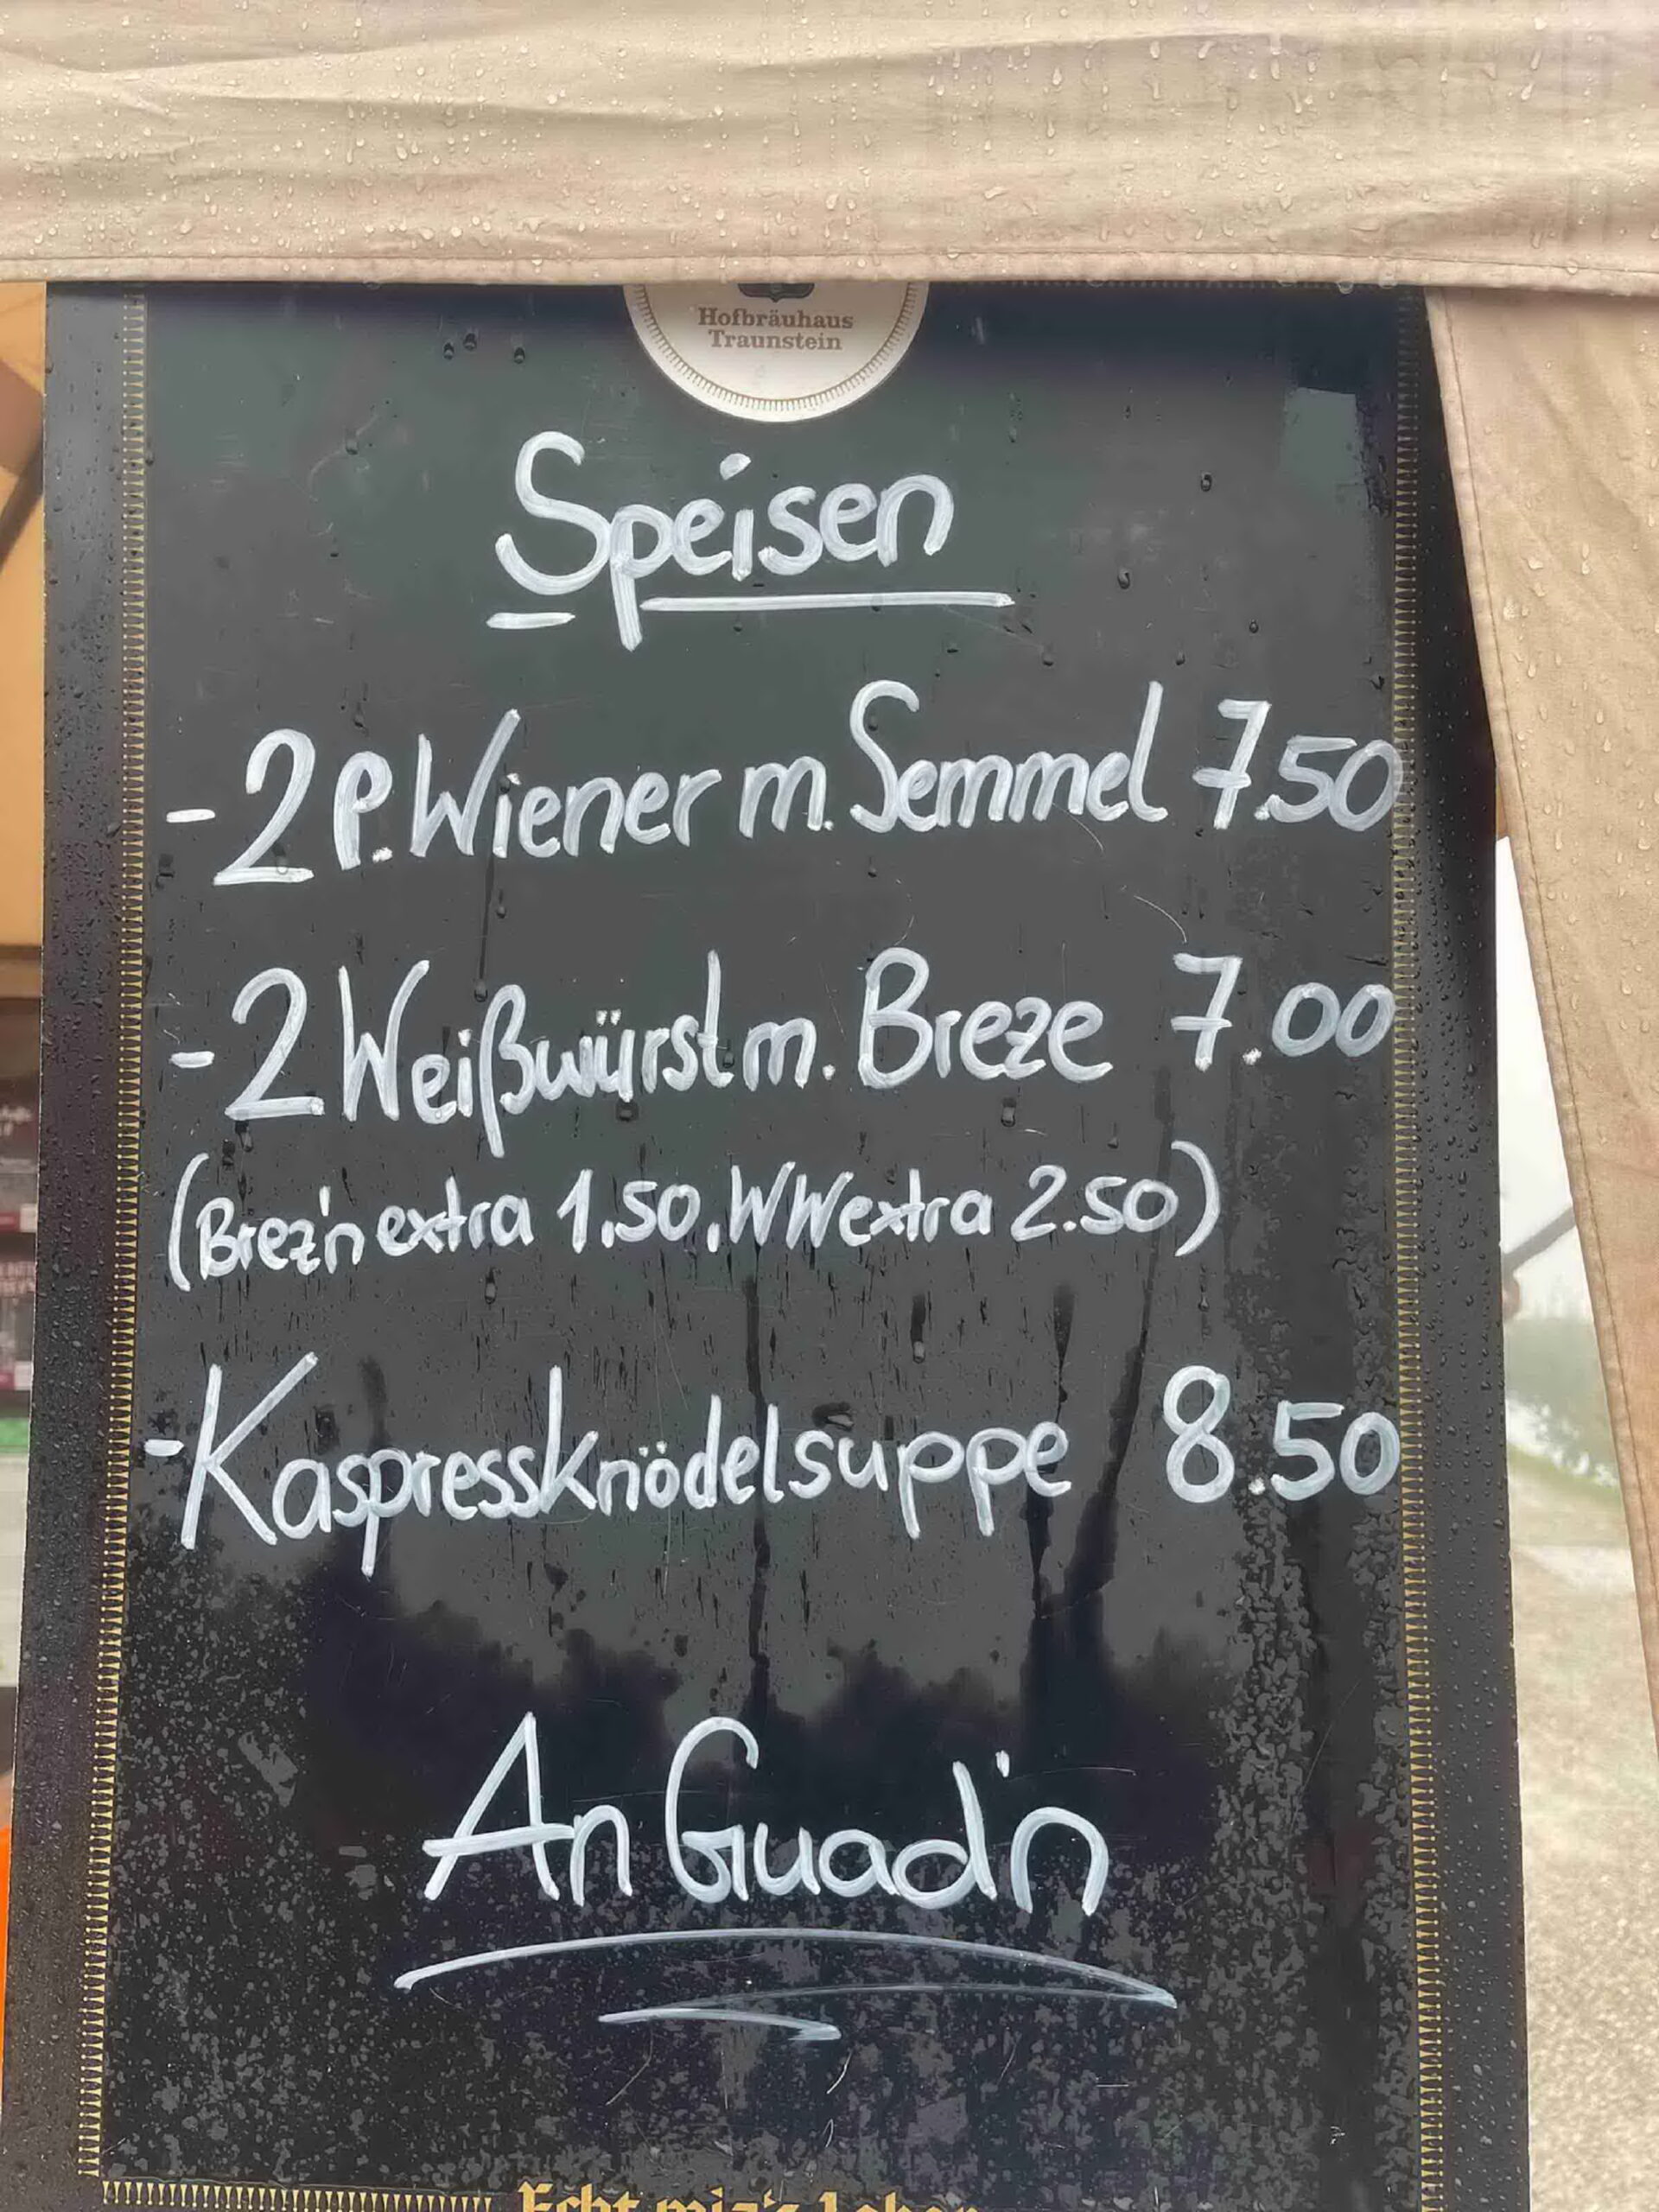 Hofbräuhaus
Traunstein
Speisen
- 2 P. Wiener m. Semmel 7.50
- 2 Weißwürst m. Breze 7.00
(Brez'n extra 1.50, WW extra 2.50)
- Kaspressknödelsuppe 8.50
An Guad'n
Echt